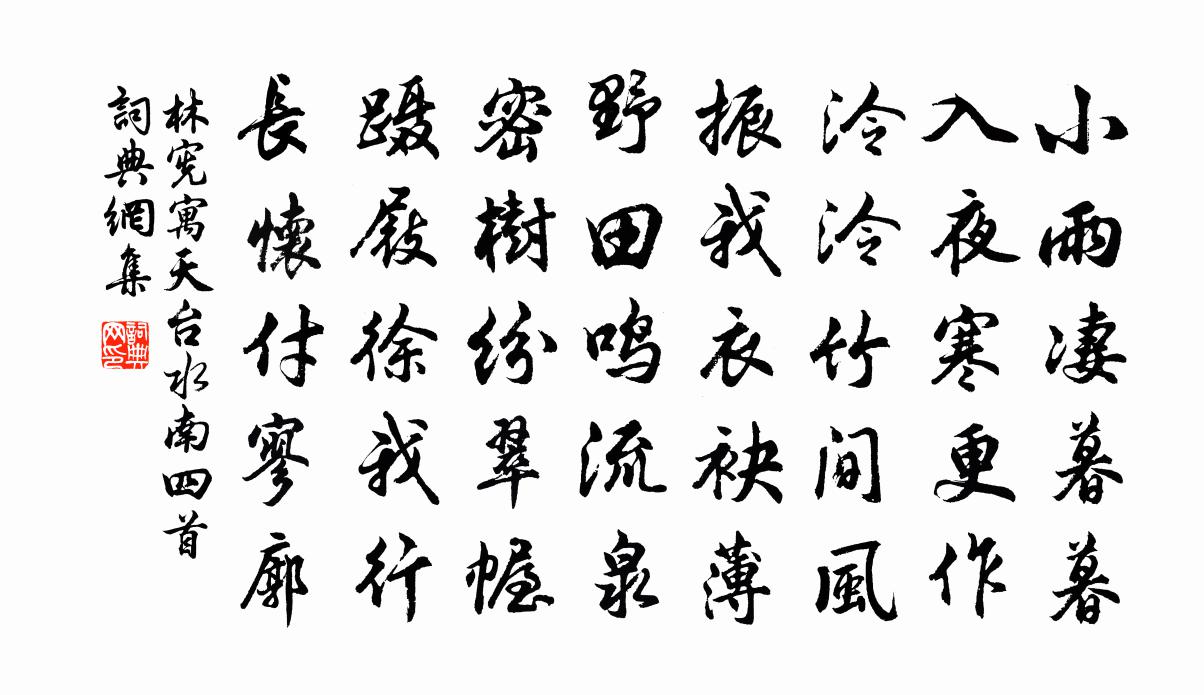 小雨淒暮暮
入夜寒更作
泠泠竹間風
振我衣袂薄
野田鳴流泉
密樹紛翠幄
躡屐徐我行
長懷付寥廓
林宪寓天台水南四首
詞典網集
詞典網印